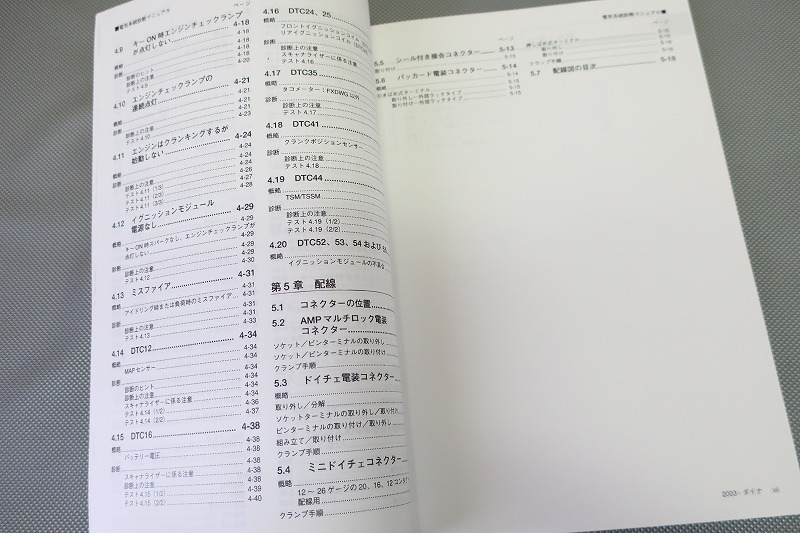 ■電気系統診断マニュアル
ページ
4.9 キーON時エンジンチェックランプ
が点灯しない 4-18
概略 4-18
診断 4-20
診断のヒント
診断上の注意
テスト4.9
4.10 エンジンチェックランプの
連続点灯 4-21
概略 4-21
診断 4-21
診断上の注意 4-21
テスト4.10 4-23
4.11 エンジンはクランキングするが
始動しない 4-24
概略 4-24
診断 4-24
診断上の注意 4-24
テスト4.11 (1/3) 4-26
テスト4.11 (2/3) 4-27
テスト4.11 (3/3) 4-28
4.12 イグニッションモジュール
電源なし 4-29
概略 4-29
キーON時スパークなし、エンジンチェックランプが
点灯しない 4-29
診断 4-29
診断上の注意 4-29
テスト4.12 4-30
4.13 ミスファイア 4-31
概略 4-31
アイドリング時または負荷時のミスファイア 4-31
診断 4-31
診断上の注意 4-31
テスト4.13 4-33
4.14 DTC12 4-34
概略 4-34
MAPセンサー 4-34
診断 4-34
診断のヒント 4-34
診断上の注意 4-34
スキャナライザーに係る注意 4-36
テスト4.14 (1/2) 4-37
テスト4.14 (2/2)
4.15 DTC16 4-38
概略 4-38
バッテリー電圧 4-38
診断 4-38
スキャナライザーに係る注意 4-38
診断上の注意 4-38
テスト4.15 (1/2) 4-39
テスト4.15 (2/2) 4-40
4.16 DTC24、25
概略
フロントイグニッションコイル
リアイグニッションコイル
診断
診断上の注意
スキャナライザーに係る注意
テスト4.16
4.17 DTC35
概略
タコメーター：FXDWG以外
診断
診断上の注意
テスト4.17
4.18 DTC41
概略
クランクポジションセンサー
診断
診断上の注意
テスト4.18
4.19 DTC44
概略
TSM/TSSM
診断
診断上の注意
テスト4.19 (1/2)
テスト4.19 (2/2)
4.20 DTC52、53、54および
概略
イグニッションモジュールの不具合
第5章 配線
5.1 コネクターの位置
5.2 AMPマルチロック電装
コネクター
ソケット／ピンターミナルの取り外し
ソケット／ピンターミナルの取り付け
クランプ手順
5.3 ドイチェ電装コネクター
概略
取り外し／分解
ソケットターミナルの取り外し／取り付け
ピンターミナルの取り外し／取り付け
組み立て／取り付け
クランプ手順
5.4 ミニドイチェコネクター
概略
12～26ゲージの20、16、12コンタクト
配線用
クランプ手順
電気系統診断マニュアル■
ページ
5.5 シール付き接合コネクター 5-13
取り付け 5-13
5.6 パッカード電装コネクター 5-14
概略 5-14
引きばめ式ターミナル 5-15
取り外し－外部ラッチタイプ 5-15
取り付け－外部ラッチタイプ 5-15
ページ
押しばめ式ターミナル 5-16
取り外し 5-16
取り付け
クランプ手順
5.7 配線図の目次 5-18
2003- ダイナ vii